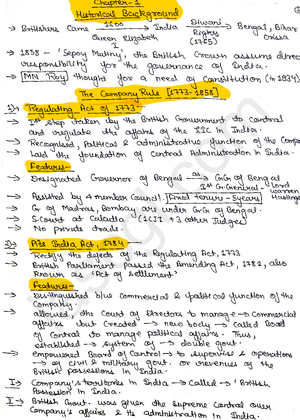 Chapter-1
Historical Background
→ Britishers Came 1600 → India Diwani → Bengal, Bihar
Queen Elizabeth I Rights (1765) Orissa
→ 1858 - 'Sepoy Mutiny', the British Crown assume direct
responsibility for the governance of India.
→ MN Roy thought for a need of Constitution (in 1934)
The Company Rule [1773-1858]
1) Regulating Act of 1773-
→ 1st step taken by the British Government to control
and regulate the affairs of the EIC in India.
→ Recognised, Political & administrative function of the Comp
→ Laid the foundation of central Administration in India.
Features-
→ Designated Governor of Bengal as → G.G of Bengal
1st G.General - Lord Warren Hastings
→ Assisted by 4 member Council Fixed Tenure - 5 years
→ G. of Madras, Bombay are under G.G of Bengal.
→ S. Court at Calcutta 1CJI + 3 other Judges
→ No private trade.
2) Pits India Act, 1784
→ Rectify the defects of the Regulating Act, 1773
→ British Parliament passed the Amending Act, 1781, also
Known as 'Act of Settlement'
Features-
→ Distinguished b/w commercial & political function of the
Company.
→ allowed, the Court of Directors to manage → commercial
affairs but created → new body → called Board
of Control to manage political affairs. Thus,
established → system of → double govt.
→ empowered Board of Control → to supervise & operations
→ of civil & military govt. or revenues of the
British possessions in India.
I → Company's territories in India → called → 'British
Possession in India.
II → British Govt. was given the supreme control over
Company's affairs & its administration in India.